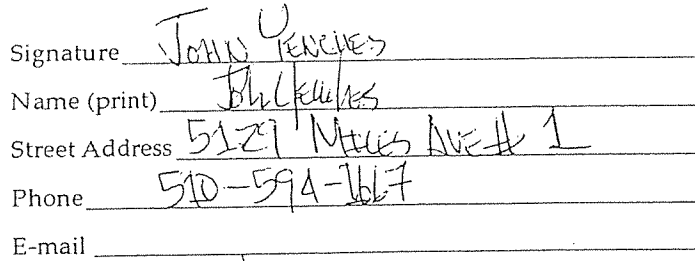 Signature JOHN YENCHES
Name (print)
Street Address 5129 MILES AVE # 1
Phone 510-594-1617
E-mail